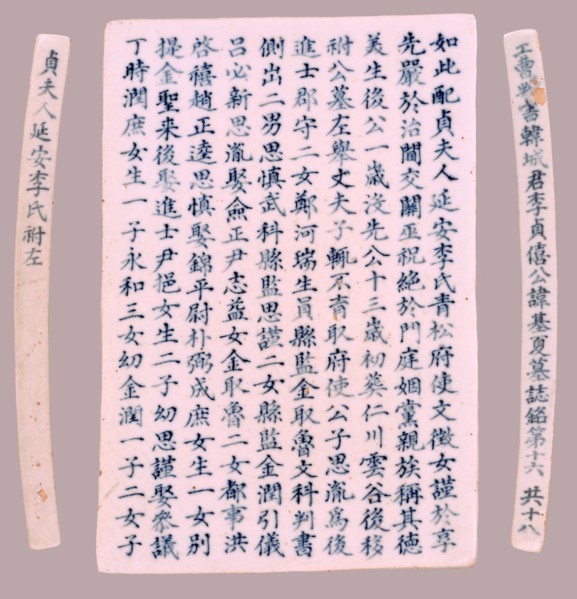 工曹判書韓城君李貞僖公諱基夏墓誌銘第十六 共十八
如此配貞夫人延安李氏青松府使文徵女謹於享
先嚴於治閫交關巫祝絶於門庭姻黨親族稱其德
美生後公一歲沒先公十三歲初葬仁川雲谷後移
祔公墓左舉丈夫子輒不育取府使公子思胤爲後
進士郡守二女鄭河瑞生員縣監金取魯文科判書
側出二男思愼武科縣監思謹二女縣監金潤引儀
呂必新思胤娶僉正尹志益女金取魯二女都事洪
啓禧趙正逵思愼娶錦平尉朴弼成庶女生一女別
提金聖来後娶進士尹挹女生二子幼思謹娶參議
丁時潤庶女生一子永和三女幼金潤一子二女子
貞夫人延安李氏祔左